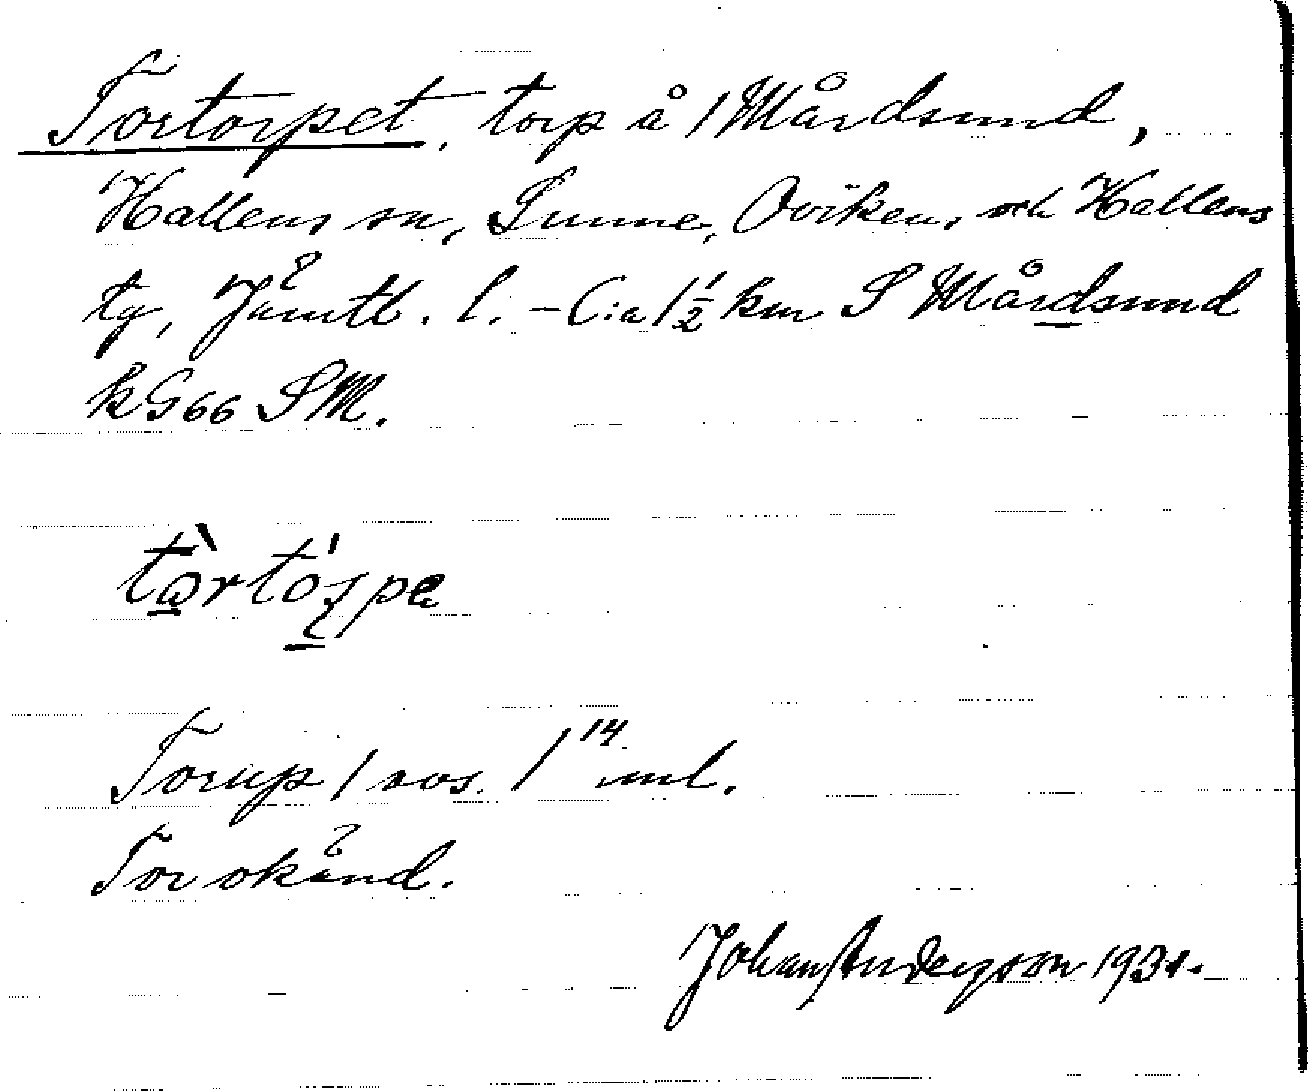 Tortorpet, torp å 1 Mårdsund,
Hallens sn, Sunne, Oviken, och Hallens
tg, Jämtl. l. – C:a 1 ½ km S Mårdsund
k G66 SM.
tòrtórpe
Torup 1 sos. 1 14 ml.
Tor okänd.
Johan Andersson 1931.